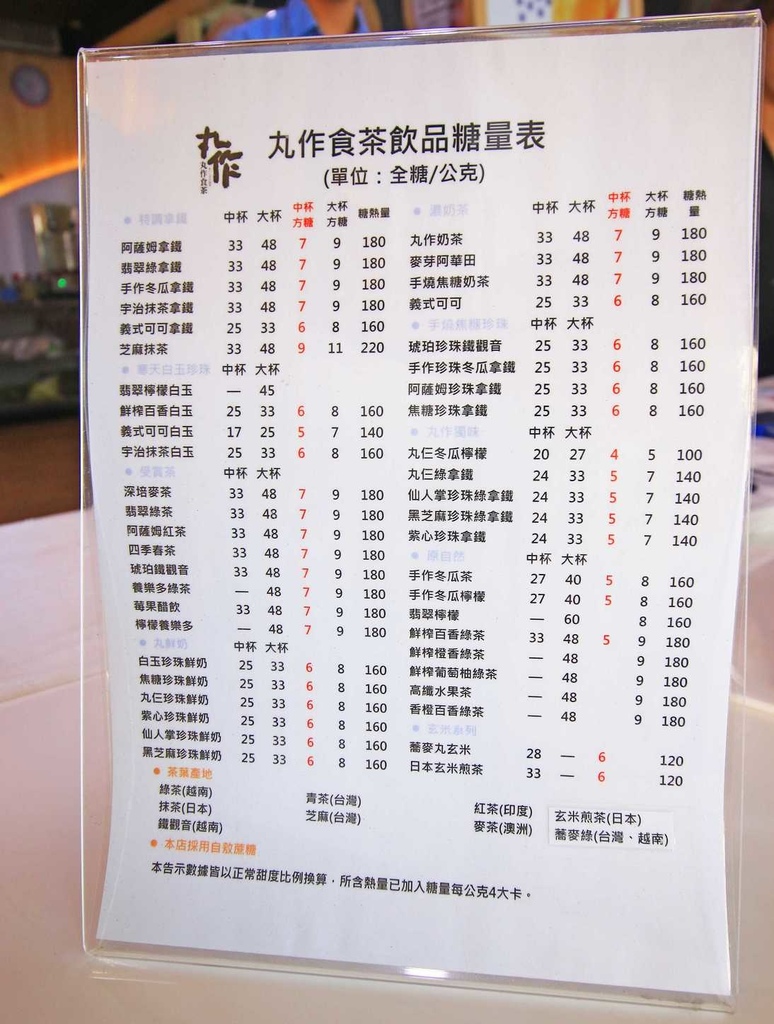 丸作
丸作食茶
丸作食茶飲品糖量表
(單位：全糖/公克)
● 特調拿鐵 中杯 大杯 中杯方糖 大杯方糖 糖熱量
阿薩姆拿鐵 33 48 7 9 180
翡翠綠拿鐵 33 48 7 9 180
手作冬瓜拿鐵 33 48 7 9 180
宇治抹茶拿鐵 33 48 7 9 180
義式可可拿鐵 25 33 6 8 160
芝麻抹茶 33 48 9 11 220
● 寒天白玉珍珠 中杯 大杯
翡翠檸檬白玉 — 45
鮮榨百香白玉 25 33 6 8 160
義式可可白玉 17 25 5 7 140
宇治抹茶白玉 25 33 6 8 160
● 受賞茶 中杯 大杯
深培麥茶 33 48 7 9 180
翡翠綠茶 33 48 7 9 180
阿薩姆紅茶 33 48 7 9 180
四季春茶 33 48 7 9 180
琥珀鐵觀音 33 48 7 9 180
養樂多綠茶 — 48 7 9 180
莓果醋飲 33 48 7 9 180
檸檬養樂多 — 48 7 9 180
● 丸鮮奶 中杯 大杯
白玉珍珠鮮奶 25 33 6 8 160
焦糖珍珠鮮奶 25 33 6 8 160
丸仨珍珠鮮奶 25 33 6 8 160
紫心珍珠鮮奶 25 33 6 8 160
仙人掌珍珠鮮奶 25 33 6 8 160
黑芝麻珍珠鮮奶 25 33 6 8 160
● 濃奶茶 中杯 大杯 中杯方糖 大杯方糖 糖熱量
丸作奶茶 33 48 7 9 180
麥芽阿華田 33 48 7 9 180
手燒焦糖奶茶 33 48 7 9 180
義式可可 25 33 6 8 160
● 手燒焦糖珍珠 中杯 大杯
琥珀珍珠鐵觀音 25 33 6 8 160
手作珍珠冬瓜拿鐵 25 33 6 8 160
阿薩姆珍珠拿鐵 25 33 6 8 160
焦糖珍珠拿鐵 25 33 6 8 160
● 丸作獨味 中杯 大杯
丸仨冬瓜檸檬 20 27 4 5 100
丸仨綠拿鐵 24 33 5 7 140
仙人掌珍珠綠拿鐵 24 33 5 7 140
黑芝麻珍珠綠拿鐵 24 33 5 7 140
紫心珍珠拿鐵 24 33 5 7 140
● 原自然 中杯 大杯
手作冬瓜茶 27 40 5 8 160
手作冬瓜檸檬 27 40 5 8 160
翡翠檸檬 — 60 8 160
鮮榨百香綠茶 33 48 5 9 180
鮮榨橙香綠茶 — 48 9 180
鮮榨葡萄柚綠茶 — 48 9 180
高纖水果茶 — 48 9 180
香橙百香綠茶 — 48 9 180
● 玄米系列
蕎麥丸玄米 28 — 6 120
日本玄米煎茶 33 — 6 120
● 茶葉產地
綠茶(越南) 青茶(台灣) 紅茶(印度) 玄米煎茶(日本)
抹茶(日本) 芝麻(台灣) 麥茶(澳洲) 蕎麥綠(台灣、越南)
鐵觀音(越南)
● 本店採用自敖蔗糖
本告示數據皆以正常甜度比例換算，所含熱量已加入糖量每公克4大卡。